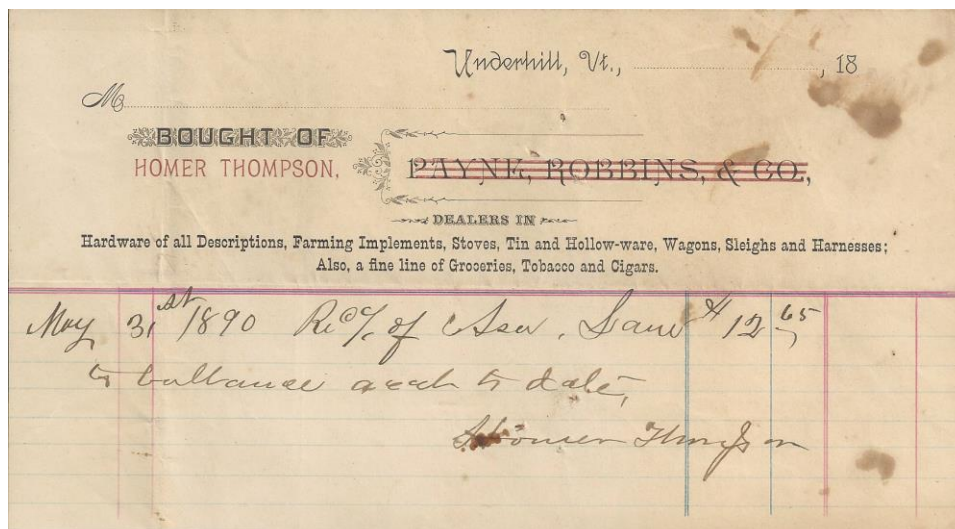 Underhill, Vt., , 18
M
BOUGHT OF
HOMER THOMPSON, PAYNE, ROBBINS, & CO.,
DEALERS IN
Hardware of all Descriptions, Farming Implements, Stoves, Tin and Hollow-ware, Wagons, Sleighs and Harnesses;
Also, a fine line of Groceries, Tobacco and Cigars.
May 31st 1890 of Asa 12 65
to ballance to date,
Homer Thompson